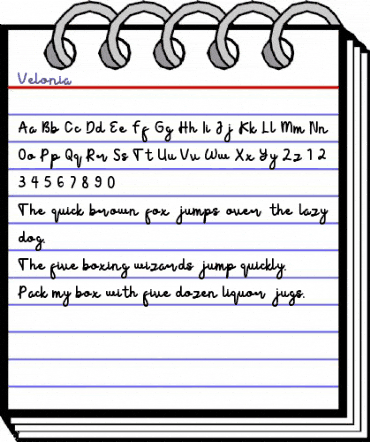 Velonia
Aa Bb Cc Dd Ee Ff Gg Hh Ii Jj Kk Ll Mm Nn
Oo Pp Qq Rr Ss Tt Uu Vv Ww Xx Yy Zz 1 2
3 4 5 6 7 8 9 0
The quick brown fox jumps over the lazy
dog.
The five boxing wizards jump quickly.
Pack my box with five dozen liquor jugs.